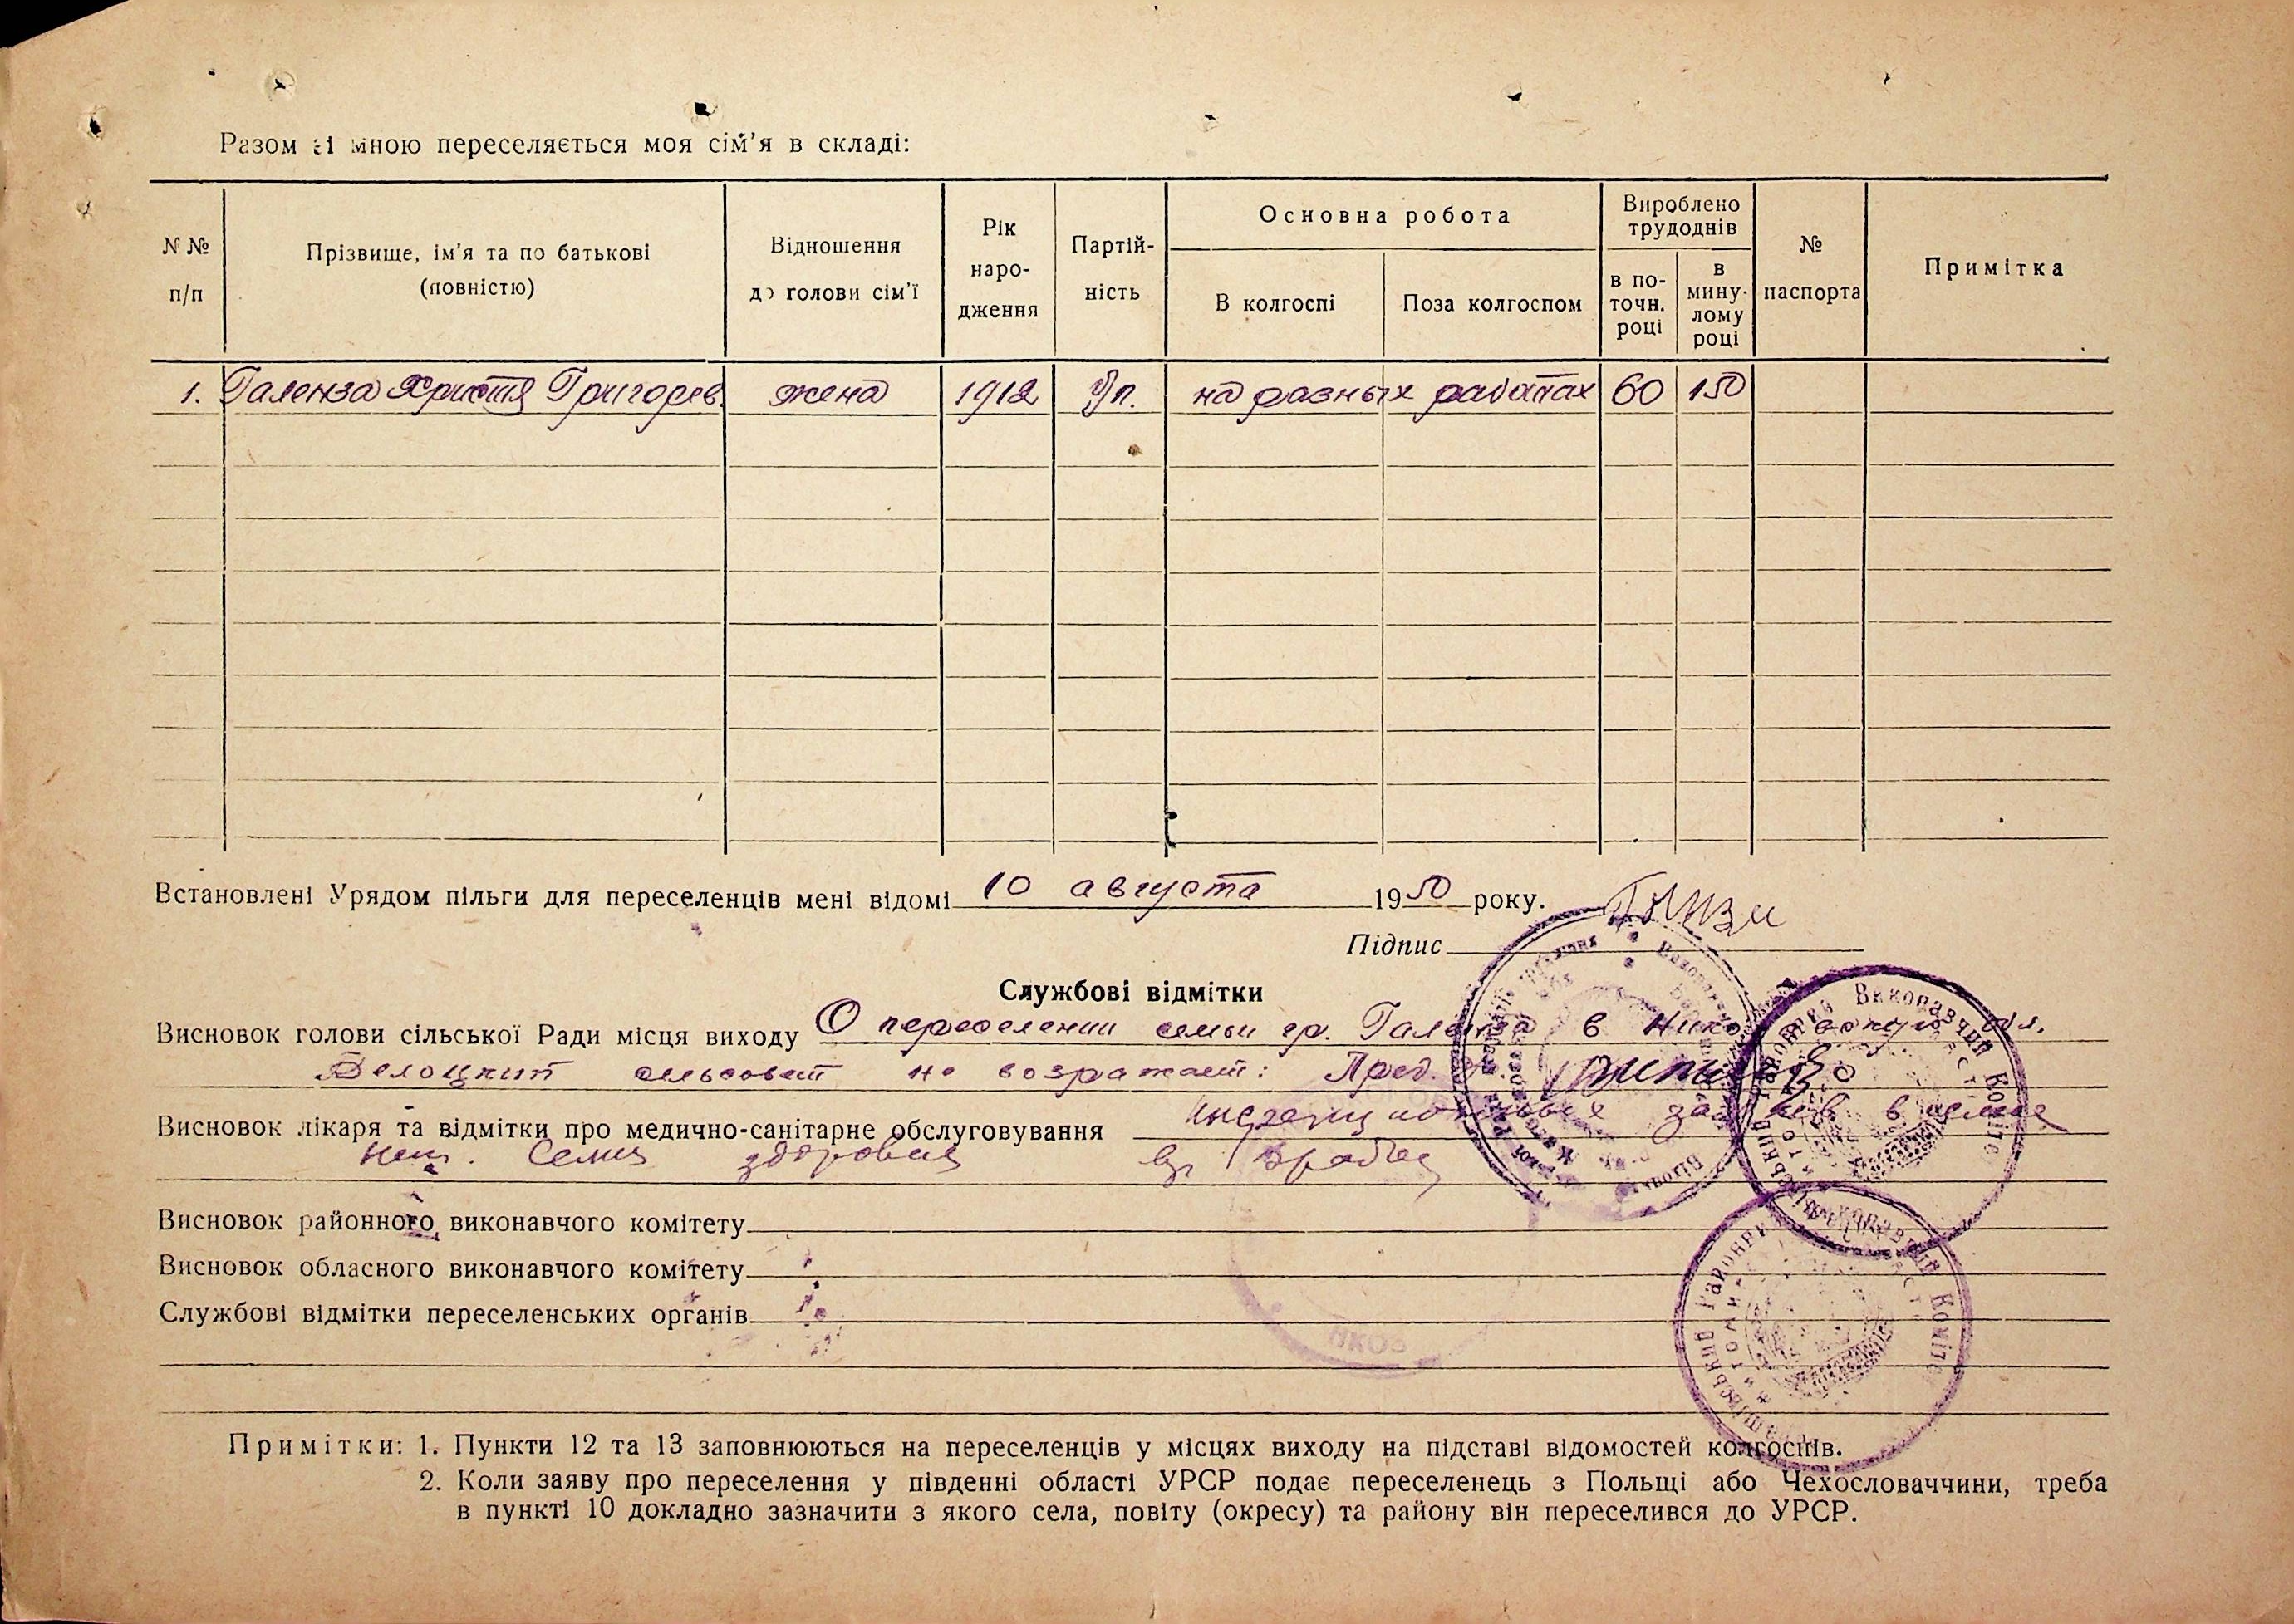 Разом зі мною переселяється моя сім'я в складі:
N№ п/п
Прізвище, ім'я та по батькові (повністю)
Відношення до голови сім'ї
Рік народження
Партійність
Основна робота
В колгоспі
Поза колгоспом
Вироблено трудоднів
в поточн. році
в минулому році
№ паспорта
Примітка
1. Галенза Христя Григорев. жена 1912 б/п. на разных работах 60 150
Встановлені Урядом пільги для переселенців мені відомі 10 августа 1950 року.
Підпис
Службові відмітки
Висновок голови сільської Ради місця виходу О переселении семьи гр. Галенза в обл.
сельсовет не возражает: Пред.
Висновок лікаря та відмітки про медично-санітарне обслуговування в семье
нет. Семья здоровая
Висновок районного виконавчого комітету
Висновок обласного виконавчого комітету
Службові відмітки переселенських органів
Виконавчий Коміте
Районний Виконавчий Коміте
Примітки: 1. Пункти 12 та 13 заповнюються на переселенців у місцях виходу на підставі відомостей колгоспів.
2. Коли заяву про переселення у південні області УРСР подає переселенець з Польщі або Чехословаччини, треба
в пункті 10 докладно зазначити з якого села, повіту (окресу) та району він переселився до УРСР.